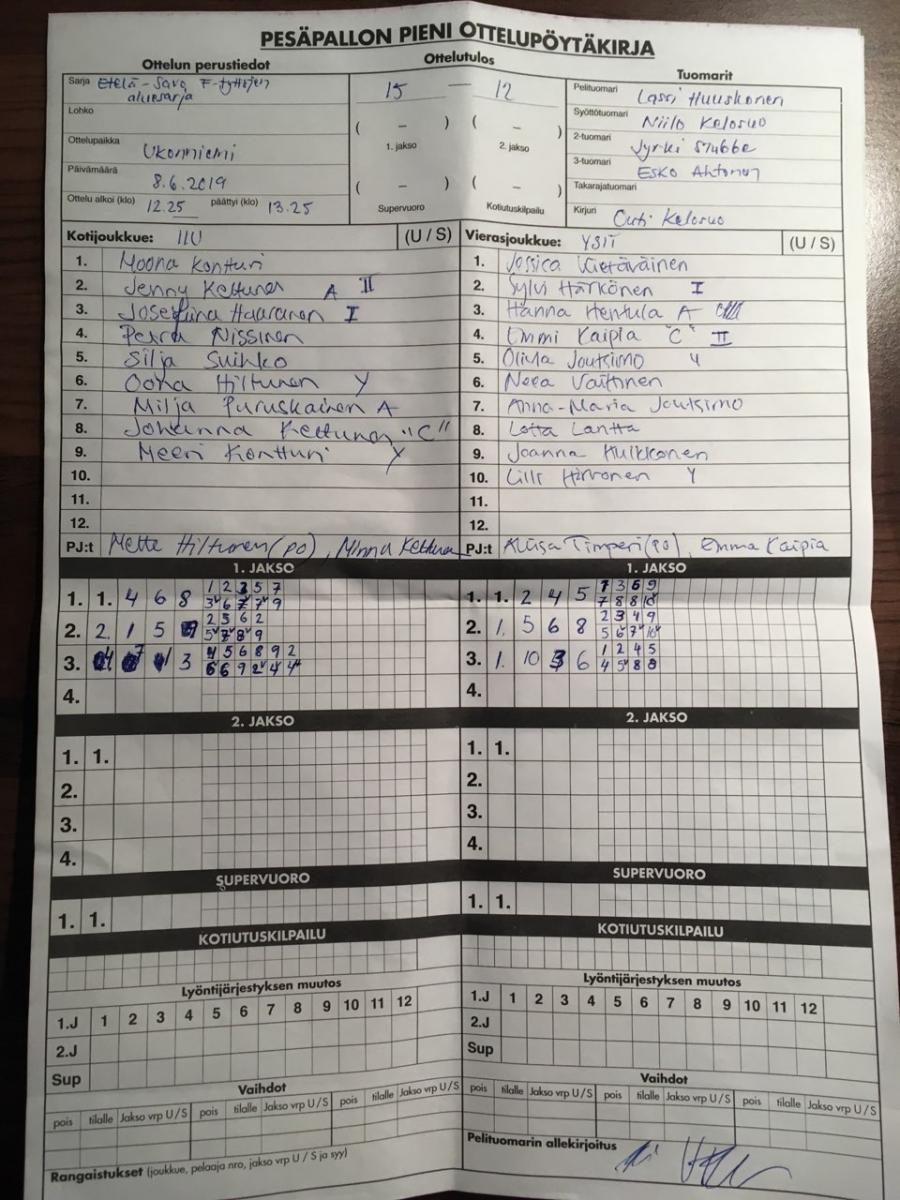 PESÄPALLON PIENI OTTELUPÖYTÄKIRJA
Ottelun perustiedot
Ottelutulos
Tuomarit
Sarja Etelä-Savo F-tyttöjen
aluesarja
15 — 12
Pelituomari Lassi Huuskonen
Lohko
Syöttötuomari Niilo Kelosuo
( – ) ( – )
1. jakso 2. jakso
Ottelupaikka Ukonniemi
2-tuomari Jyrki Stubbe
Päivämäärä 8.6.2019
3-tuomari Esko Ahtonen
( – ) ( – )
Takarajatuomari
Ottelu alkoi (klo) 12.25 päättyi (klo) 13.25
Supervuoro Kotiutuskilpailu
Kirjuri Outi Kelosuo
Kotijoukkue: (U / S)
1. Moona Kontturi
2. Jenny Kettunen A II
3. Josefiina Haaranen I
4. Petra Nissinen
5. Silja Suihko
6. Oona Hiltunen Y
7. Milja Puruskainen A
8. Johanna Kettunen "C"
9. Meeri Kontturi Y
10.
11.
12.
PJ:t Mette Hiltunen (PO), Minna Kettunen
Vierasjoukkue: (U / S)
1. Jessica Vietäväinen
2. Sylvi Härkönen I
3. Hanna Hentula A
4. Emmi Kaipia "C" II
5. Olivia Joutsimo Y
6. Neea Vaittinen
7. Anna-Maria Joutsimo
8. Lotta Lantta
9. Joanna Hulkkonen
10. Lilli Hirvonen Y
11.
12.
PJ:t Timperi (PO), Emma Kaipia
1. JAKSO
1. 1. 4 6 8 1 2 3 5 7
3 6 7 7 9
2. 2. 1 5 9 2 5 6 2
5 7 8 9
3. 3 4 5 6 8 9 2
6 6 9 2 4 4
4.
1. JAKSO
1. 1. 2 4 5 1 3 6 9
7 8 8 10
2. 1. 5 6 8 2 3 4 9
5 6 7 10
3. 1. 10 3 6 1 2 4 5
4 5 8 8
4.
2. JAKSO
1. 1.
2.
3.
4.
2. JAKSO
1. 1.
2.
3.
4.
SUPERVUORO
1. 1.
SUPERVUORO
1. 1.
KOTIUTUSKILPAILU
KOTIUTUSKILPAILU
Lyöntijärjestyksen muutos
1.J 1 2 3 4 5 6 7 8 9 10 11 12
2.J
Sup
Lyöntijärjestyksen muutos
1.J 1 2 3 4 5 6 7 8 9 10 11 12
2.J
Sup
Vaihdot
pois tilalle Jakso vrp U / S pois tilalle Jakso vrp U / S pois tilalle Jakso vrp U / S
Vaihdot
pois tilalle Jakso vrp U / S pois tilalle Jakso vrp U / S pois tilalle Jakso vrp U / S
Rangaistukset (joukkue, pelaaja nro, jakso vrp U / S ja syy)
Pelituomarin allekirjoitus